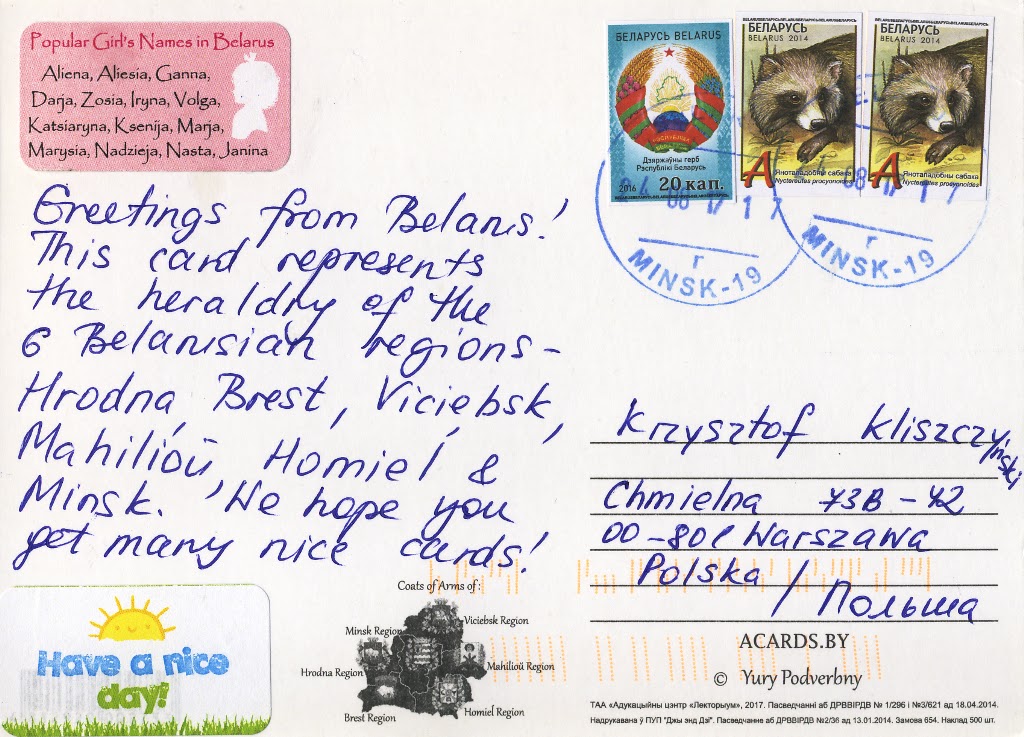 Popular Girl's Names in Belarus
Aliena, Aliesia, Ganna,
Darja, Zosia, Iryna, Volga,
Katsiaryna, Ksenija, Marja,
Marysia, Nadzieja, Nasta, Janina
БЕЛАРУСЬ BELARUS
Дзяржаўны герб
Рэспублікі Беларусь
2016 20 кап.
БЕЛАРУСЬ
BELARUS 2014
A Янотападобны сабака
Nyctereutes procyonoides
БЕЛАРУСЬ
BELARUS 2014
A Янотападобны сабака
Nyctereutes procyonoides
08 17 1 7
08 17 1 7
г
MINSK-19
г
MINSK-19
Greetings from Belarus!
This card represents
the heraldry of the
6 Belarusian regions -
Hrodna, Brest, Viciebsk,
Mahilioŭ, Homieĺ &
Minsk. We hope you
get many nice cards!
Krzysztof Kliszczyński
Chmielna 73B - 42
00-801 Warszawa
Polska / Польша
Have a nice
day!
Coats of Arms of :
Viciebsk Region
Minsk Region
Mahilioŭ Region
Hrodna Region
Homiel Region
Brest Region
ACARDS.BY
© Yury Podverbny
ТАА «Адукацыйны цэнтр «Лекторыум», 2017. Пасведчанні аб ДРВВІРДВ № 1/296 і №3/621 ад 18.04.2014.
Надрукавана ў ПУП "Джы энд Дзі". Пасведчанне аб ДРВВІРДВ №2/36 ад 13.01.2014. Замова 654. Наклад 500 шт.